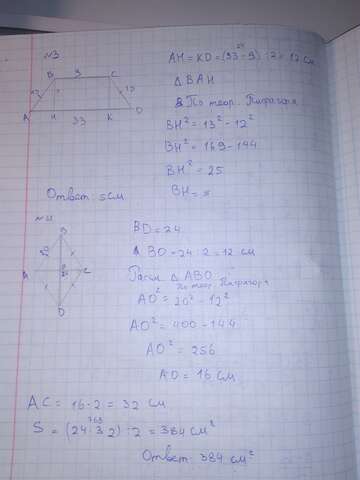 №3
B 9 C
13 13
A H K D
33
24
AH = KD = (33 - 9) : 2 = 12 см
Δ BAH
По теор. Пифагора
BH² = 13² - 12²
BH² = 169 - 144
BH² = 25
BH = 5
Ответ 5см
B
A C
D
BD = 24
BO - 24 : 2 = 12 см
Δ ABO
По теор. Пифагора
AO² = 20² - 12²
AO² = 400 - 144
AO² = 256
AO = 16 см
AC = 16 · 2 = 32 см
768
S = (24 · 32) : 2 = 384 см²
Ответ 384 см²